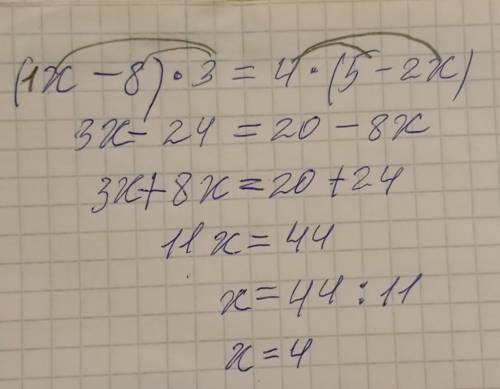 (1x - 8) · 3 = 4 · (5 - 2x)
3x - 24 = 20 - 8x
3x + 8x = 20 + 24
11x = 44
x = 44 : 11
x = 4